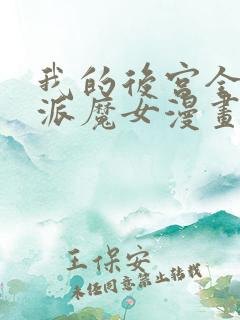 我的後宮全
派魔女漫畫
王保安
未经同意禁止转载